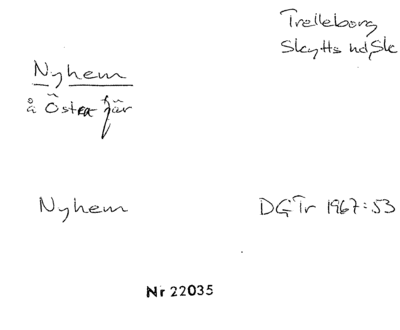 Trelleborg
Skytts hd, Sk
Nyhem
å Östra fjär
Nyhem
DGTr 1967:53
Nr 22035